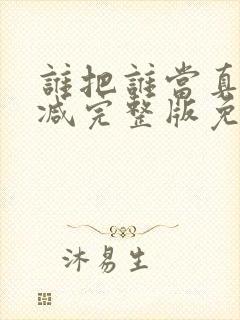 誰把誰當真
减完整版免
沐易生